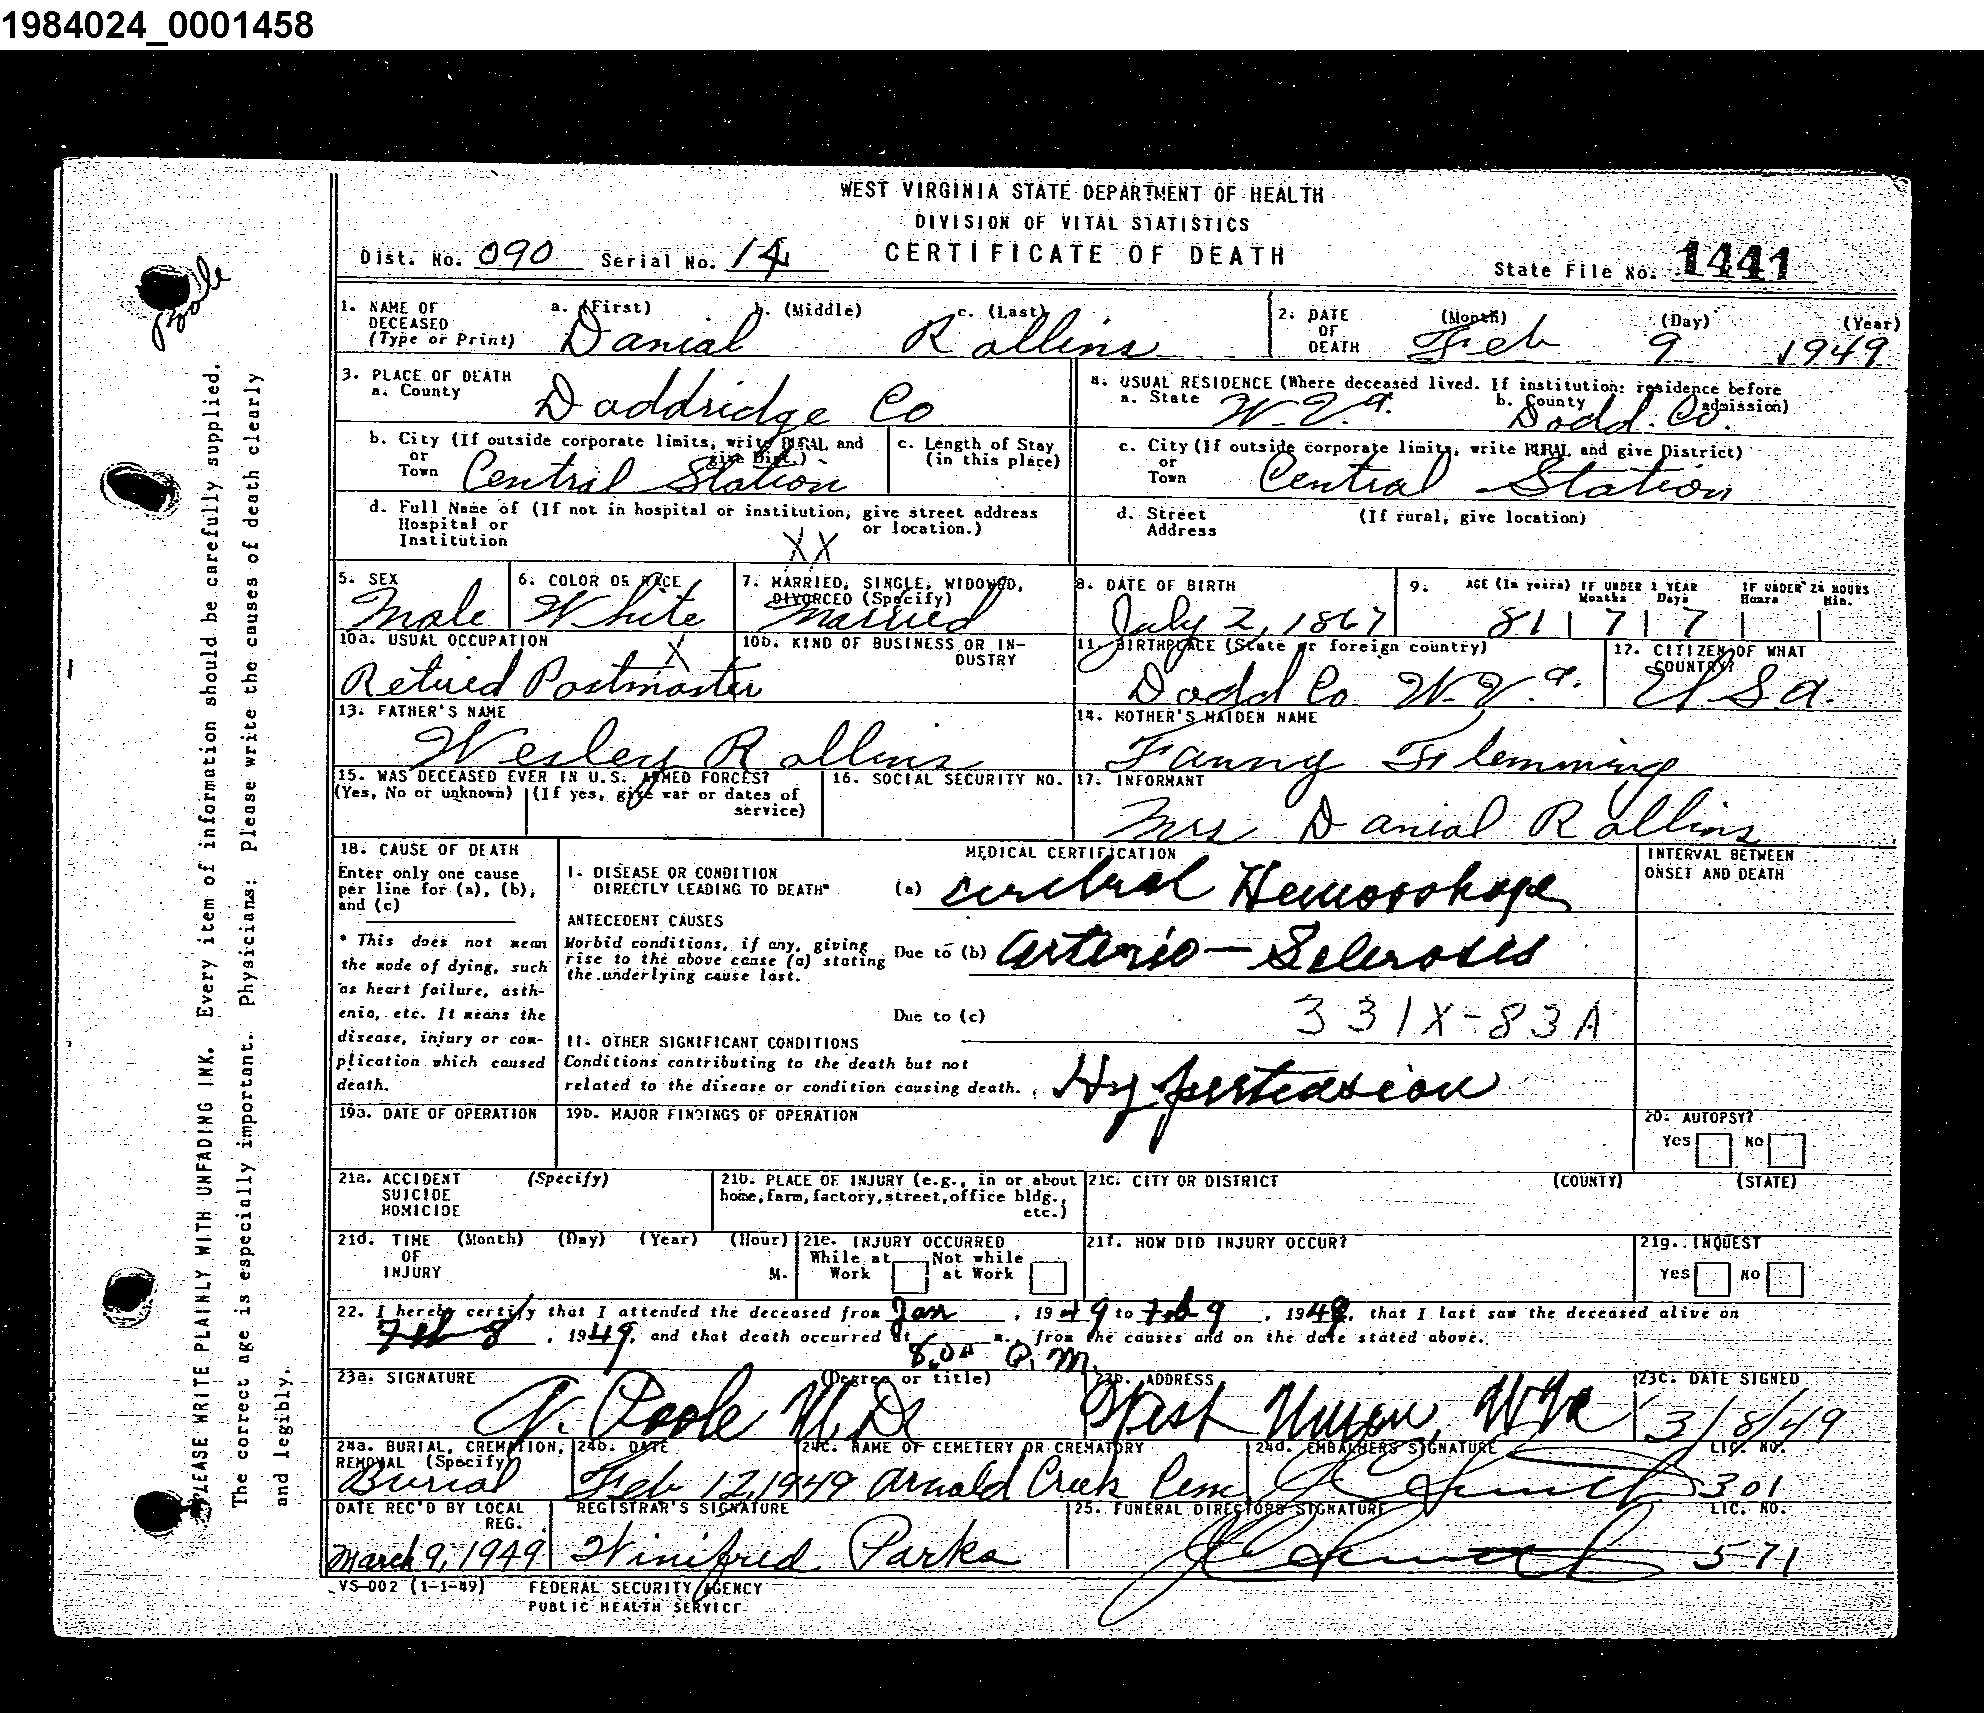 1984024_0001458
WEST VIRGINIA STATE DEPARTMENT OF HEALTH
DIVISION OF VITAL STATISTICS
Dist. No. 090 Serial No. 14 CERTIFICATE OF DEATH State File No. 1441
Poole
PLEASE WRITE PLAINLY WITH UNFADING INK. Every item of information should be carefully supplied.
The correct age is especially important. Physicians: please write the causes of death clearly
and legibly.
1. NAME OF DECEASED (Type or Print) a. (First) b. (Middle) c. (Last)
Danial Rollins
2. DATE OF DEATH (Month) (Day) (Year)
Feb 9 1949
3. PLACE OF DEATH
a. County Doddridge Co
4. USUAL RESIDENCE (Where deceased lived. If institution: residence before admission)
a. State W.Va. b. County Dodd. Co.
b. City (If outside corporate limits, write RURAL and give Dist.) or Town Central Station
c. Length of Stay (in this place)
c. City (If outside corporate limits, write RURAL and give District) or Town Central Station
d. Full Name of (If not in hospital or institution, give street address or location.) Hospital or Institution XX
d. Street Address (If rural, give location)
5. SEX Male
6. COLOR OR RACE White
7. MARRIED, SINGLE, WIDOWED, DIVORCED (Specify) Married
8. DATE OF BIRTH July 2, 1867
9. AGE (In years) IF UNDER 1 YEAR Months Days IF UNDER 24 HOURS Hours Min.
81 7 7
10a. USUAL OCCUPATION X
Retired Postmaster
10b. KIND OF BUSINESS OR INDUSTRY
11. BIRTHPLACE (State or foreign country)
Dodd Co W.Va.
12. CITIZEN OF WHAT COUNTRY?
U S a.
13. FATHER'S NAME
Wesley Rollins
14. MOTHER'S MAIDEN NAME
Fanny Flemming
15. WAS DECEASED EVER IN U.S. ARMED FORCES?
(Yes, No or unknown) (If yes, give war or dates of service)
16. SOCIAL SECURITY NO.
17. INFORMANT
Mrs Danial Rollins
18. CAUSE OF DEATH
Enter only one cause per line for (a), (b), and (c)
* This does not mean the mode of dying, such as heart failure, asthenia, etc. It means the disease, injury or complication which caused death.
MEDICAL CERTIFICATION
INTERVAL BETWEEN ONSET AND DEATH
I. DISEASE OR CONDITION DIRECTLY LEADING TO DEATH* (a) Cerebral Hemorrhage
ANTECEDENT CAUSES
Morbid conditions, if any, giving rise to the above cause (a) stating the underlying cause last.
Due to (b) Arterio-Sclerosis
Due to (c) 331X-83A
II. OTHER SIGNIFICANT CONDITIONS
Conditions contributing to the death but not related to the disease or condition causing death. Hypertension
19a. DATE OF OPERATION
19b. MAJOR FINDINGS OF OPERATION
20. AUTOPSY?
Yes No
21a. ACCIDENT SUICIDE HOMICIDE (Specify)
21b. PLACE OF INJURY (e.g., in or about home, farm, factory, street, office bldg., etc.)
21c. CITY OR DISTRICT (COUNTY) (STATE)
21d. TIME OF INJURY (Month) (Day) (Year) (Hour) M.
21e. INJURY OCCURRED
While at Work Not while at Work
21f. HOW DID INJURY OCCUR?
21g. INQUEST
Yes No
22. I hereby certify that I attended the deceased from Jan, 1949 to Feb 9, 1949, that I last saw the deceased alive on
Feb 8, 1949, and that death occurred at m., from the causes and on the date stated above.
8.00 P.M.
23a. SIGNATURE (Degree or title)
A. Poole M.D.
23b. ADDRESS
West Union, W Va
23c. DATE SIGNED
3/8/49
24a. BURIAL, CREMATION, REMOVAL (Specify)
Burial
24b. DATE
Feb 12, 1949
24c. NAME OF CEMETERY OR CREMATORY
Arnold Creek Cem
24d. EMBALMERS SIGNATURE LIC. NO.
301
DATE REC'D BY LOCAL REG.
March 9, 1949
REGISTRAR'S SIGNATURE
Winifred Parks
25. FUNERAL DIRECTORS SIGNATURE LIC. NO.
571
VS-002 (1-1-49) FEDERAL SECURITY AGENCY
PUBLIC HEALTH SERVICE